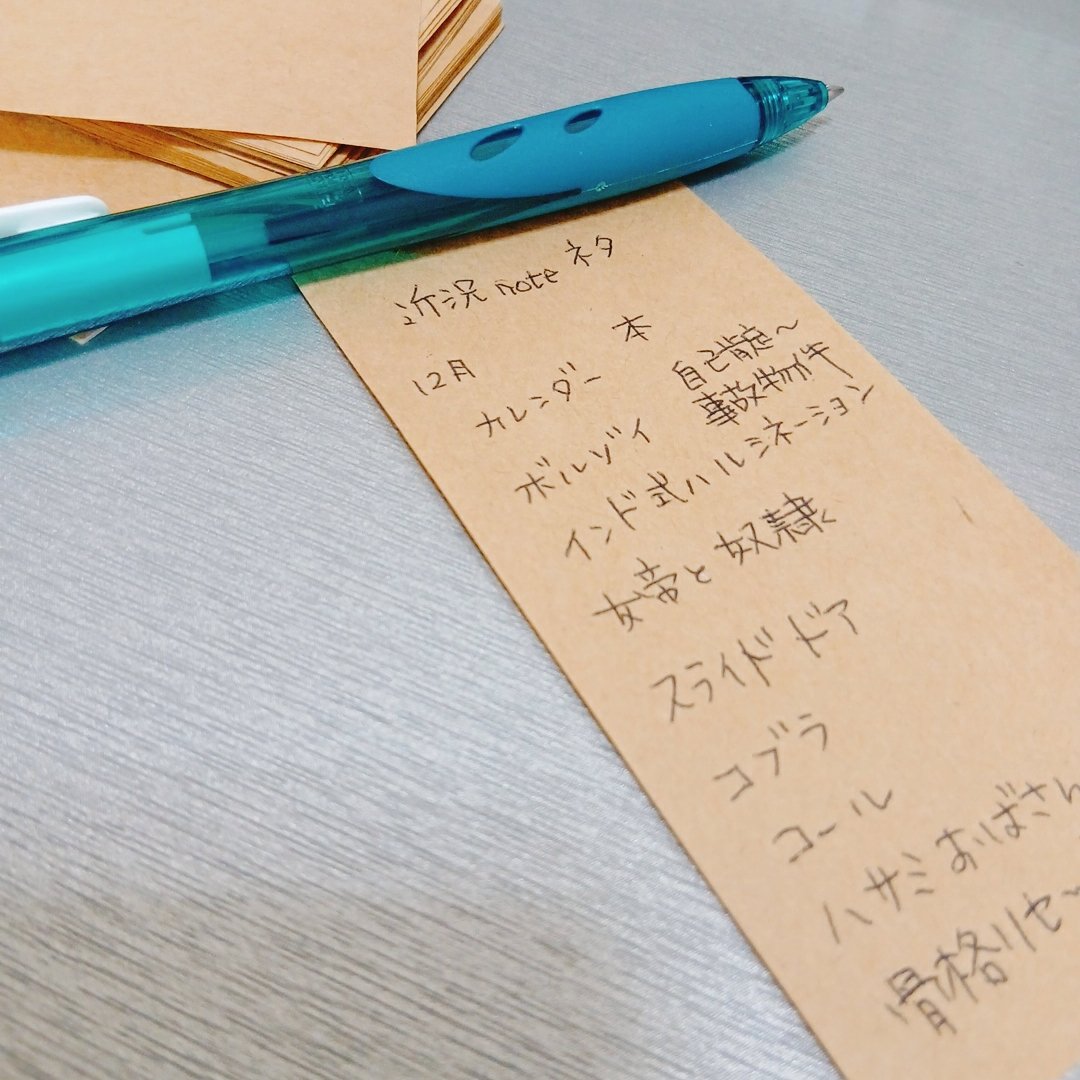 近況noteネタ
12月
カレンダー
ボルゾイ
インド式ハルシネーション
女帝と奴隷
スライドドア
コブラ
コール
ハサミおばさん
骨格リセ
本
自己肯定〜
事故物件